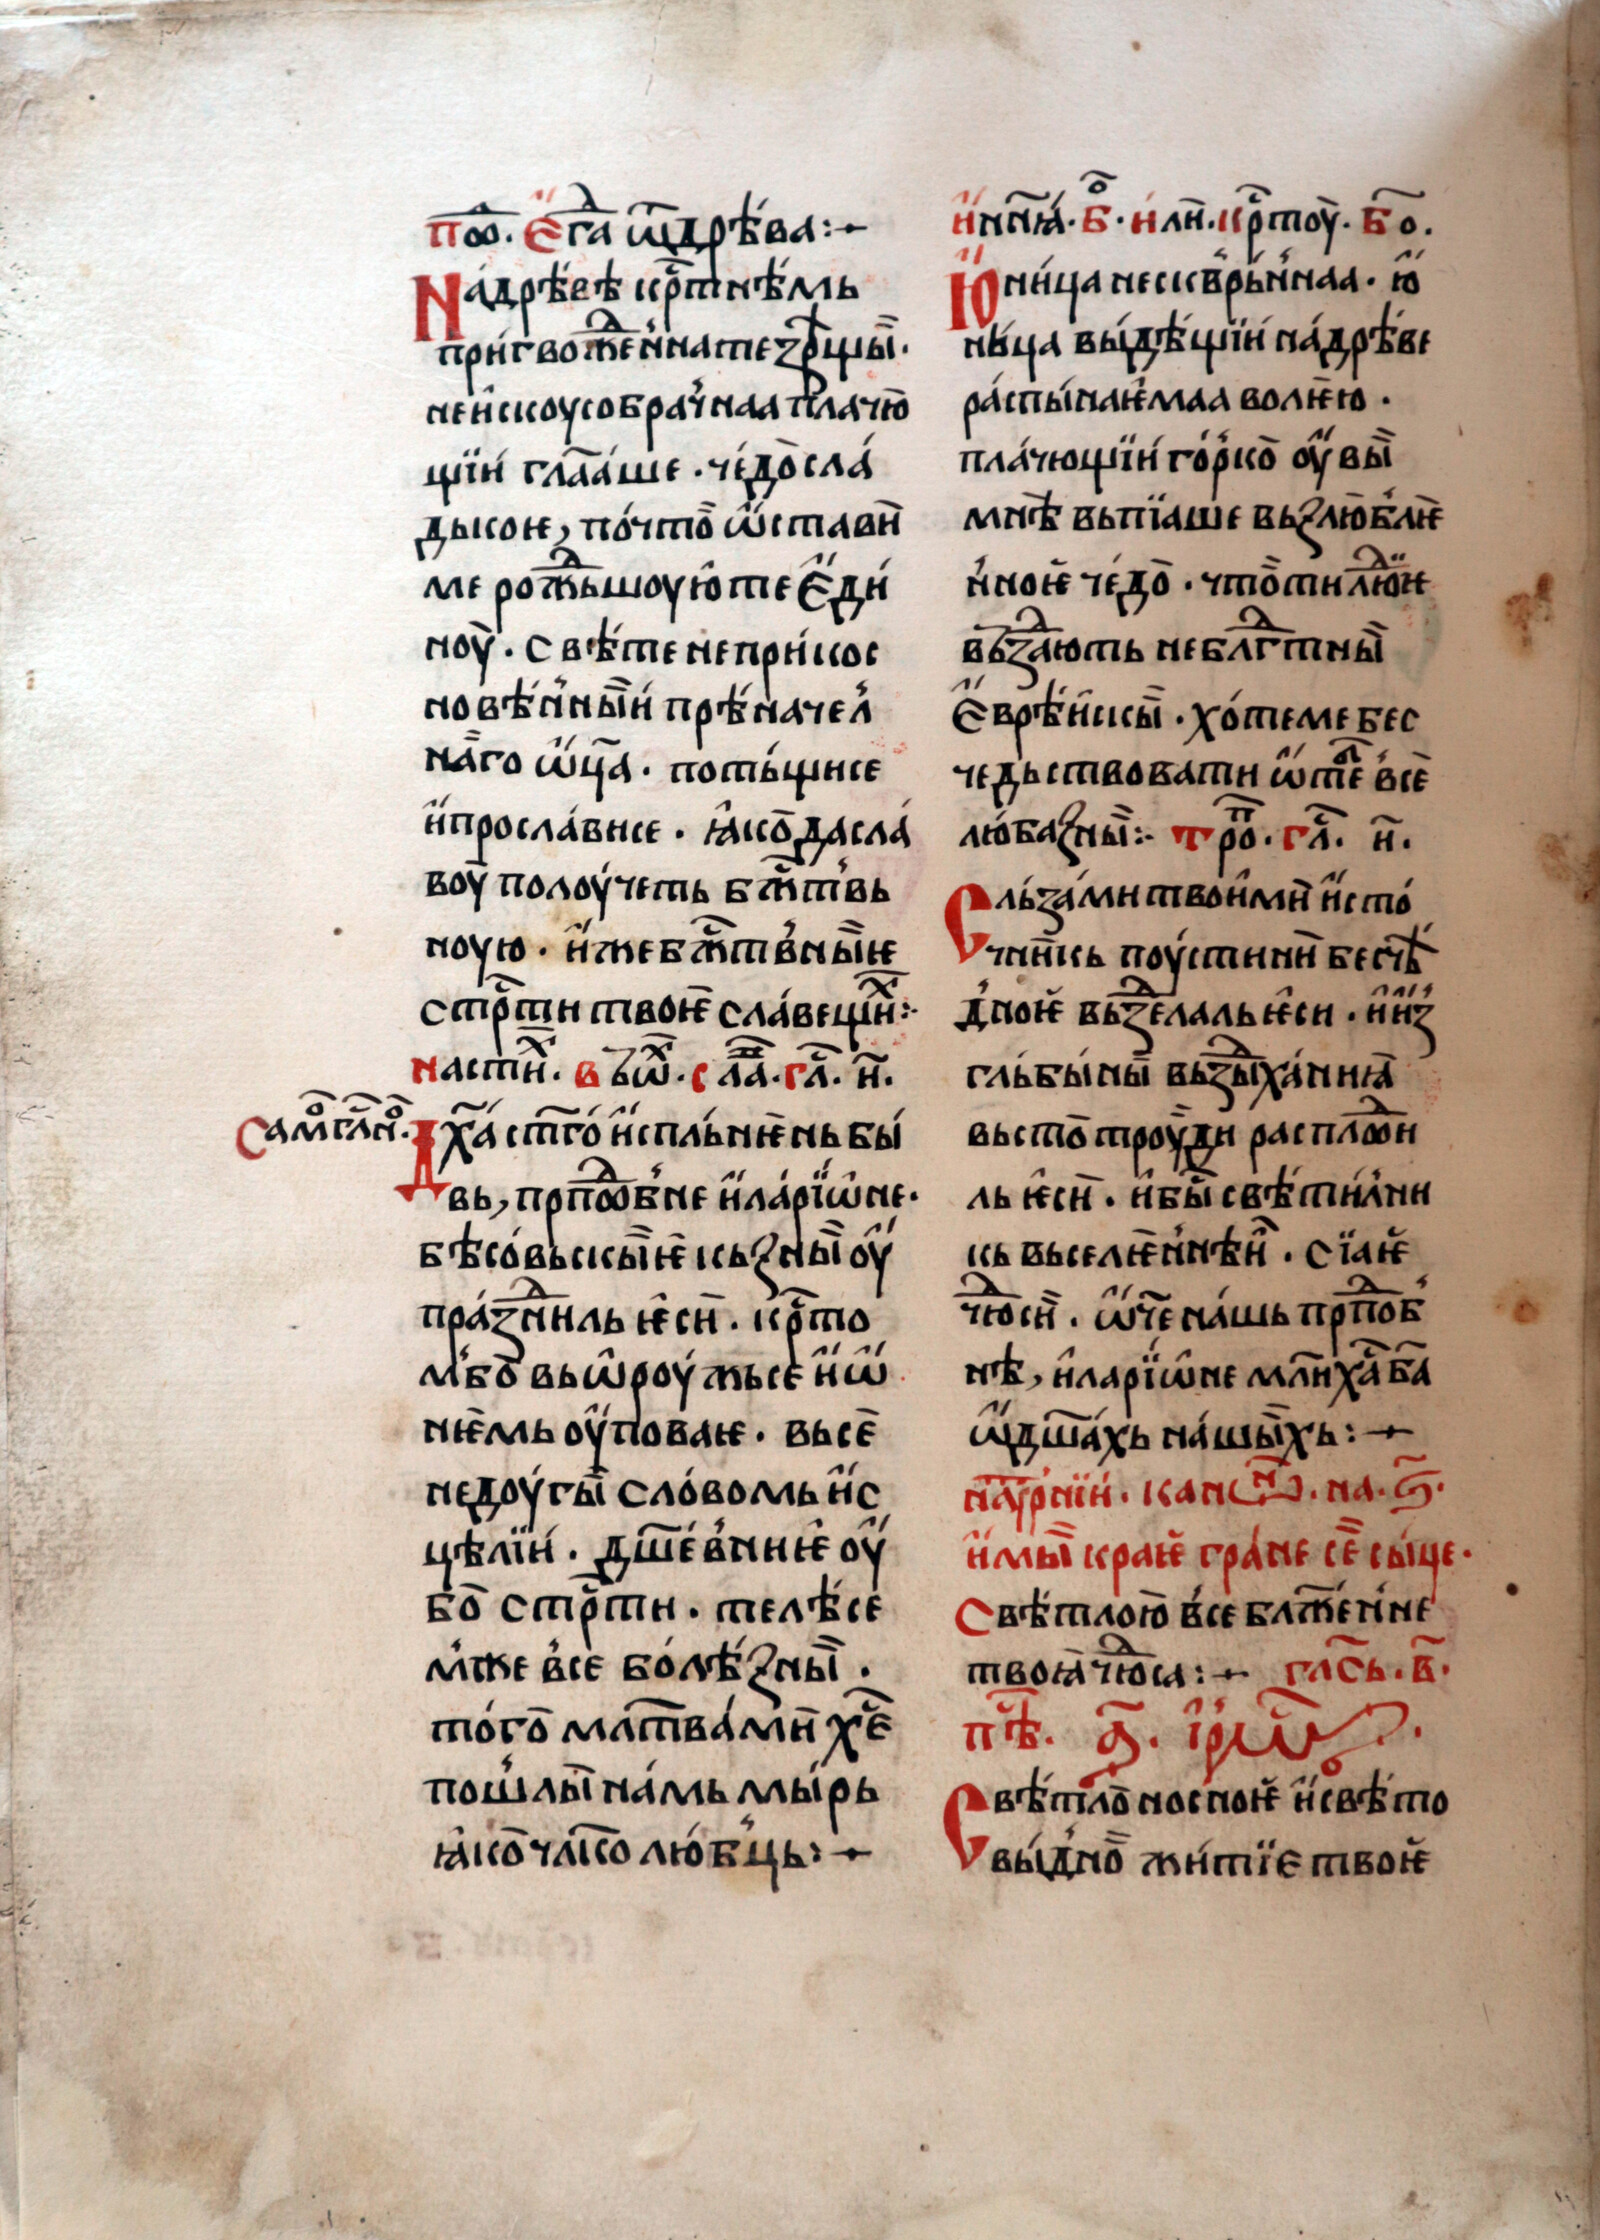 поⷣⷪ. Є҆гⷣа ѿдрѣ́ва:~
На́дрѣвѣ крⷭ҇тнѣмь
приговожⷣе́нна те зрѣщы̏.
неи҆скоусобра́чнаа плачю̏
щїи́ гл҃а́аше. че́дѡ̏ сла́
дькоѥ, по́что̏ ѡ҆ставѝ
ме рожⷣьшоую̑ те Є҆ди́
ноу̏. с вѣ́те непри́кос
новѣ́нны̏и прѣ́наче́л
на̏го ѡ҆ц҃а. поть́щисе
и҆ просла́висе. ꙗ҆ко̏ да сла́
воу̏ полоу́четь бж҃тⷭ҇въ
ноую. и҆же бж҃тⷭ҇в́ны̏ѥ
стрⷭ҇ти твоѥ̏ сла́вещиⷯ:~
на стиⷯ. въꙁѡⷯ. слаⷡ. глⷭ҇. и҃.
Самоⷢглⷭ҇ноⷪ.
Дх҃а ст҃го́ и҆спль́нѥ́нь бы́
вь, прпⷣобне и҆ла́рїѡ҆не.
бѣсо́вьскы̏ѥ къꙁны̏ оу҆
пра́ꙁⷣниль ѥ҆сѝ. крⷭ҇то
м́ бо̏ въѡ҆роу́жьсе и҆ ѡ҆
нѥ̏мь оу҆поваѥ. вьсе̏
недоу́гы̏ сло́вомь и҆с
цѣлїи́. дш҃е́вннѥ̑ оу҆
бо̏ стрⷭ҇ти. телѣ́се
м́же в́се болѣ́ꙁны̏.
то́го̏ мл҃тва́мѝ хⷭ҇е
пошлы̏ на́мь мы́рь
ꙗ҆ко̏ чл҃ко лю́б́ць:~
и҆ нн҃ꙗ. бⷪ҇. и́лѝ. крⷭ҇тоу̏. бо̏.
Ю҆ни́ца нескврь́н́наа. ю҆
ньца вы́дѣщїи на́дрѣве
ра́спы́наѥ́маа волѥ̏ю.
пла́чющїи го́рко̏ оу҆вы̏
мнѣ̏ вьпїаше вьꙁлю̏блѥ̏
н́ноѥ̏ че́до̏. что̏ти люⷣиѥ
въꙁⷣають неблⷣгтны̏
Є҆врѣ́и҆скы̏. хо́теме бес
чедьствовати ѡ҆теⷠ в́се̏
лю́баꙁны̏:~ троⷫ. глⷭ҇. и҃.
Сль́ꙁа́ми твои́мѝ и҆сто́
чни́кь поу́стинѝ бесчⷭ҇ѣ
д́ноѥ̏ въꙁⷣелаль ѥ҆си. и҆ и҆ꙁ
гльбы́ны̏ въꙁⷣыха́нниꙗ̏
вьсто̏ троу̏ди расплоⷣи
ль ѥ҆сѝ. и҆ бы̏ свѣти́лни
кь вьселѥ́ннѣи̏. сїаѥ̏
чюⷣсѝ. ѡ҆ч҃е на́шь прпⷣоб
нѣ, и҆ларїѡ҆не мл҃и хⷭ҇а ба҃
ѿдш҃а́хь на́шы̏хь:~
на оу҆трⷭ҇нїи́. канѡⷩ. на. ѕ҃.
и҆мы̏ краѥ̏ гра́не се̏ сы́це.
Свѣ́тлою̏ в́се бл҃же́н́не
твоꙗ̏ чюⷣса:~ гла́сь. в҃.
пⷭ҇ѣ. а҃. і҆рмѡⷭ҇.
Свѣ́тло̏носноѥ̏ и҆ свѣ́то
вы́дно̏ жи́тїе твоѥ̏